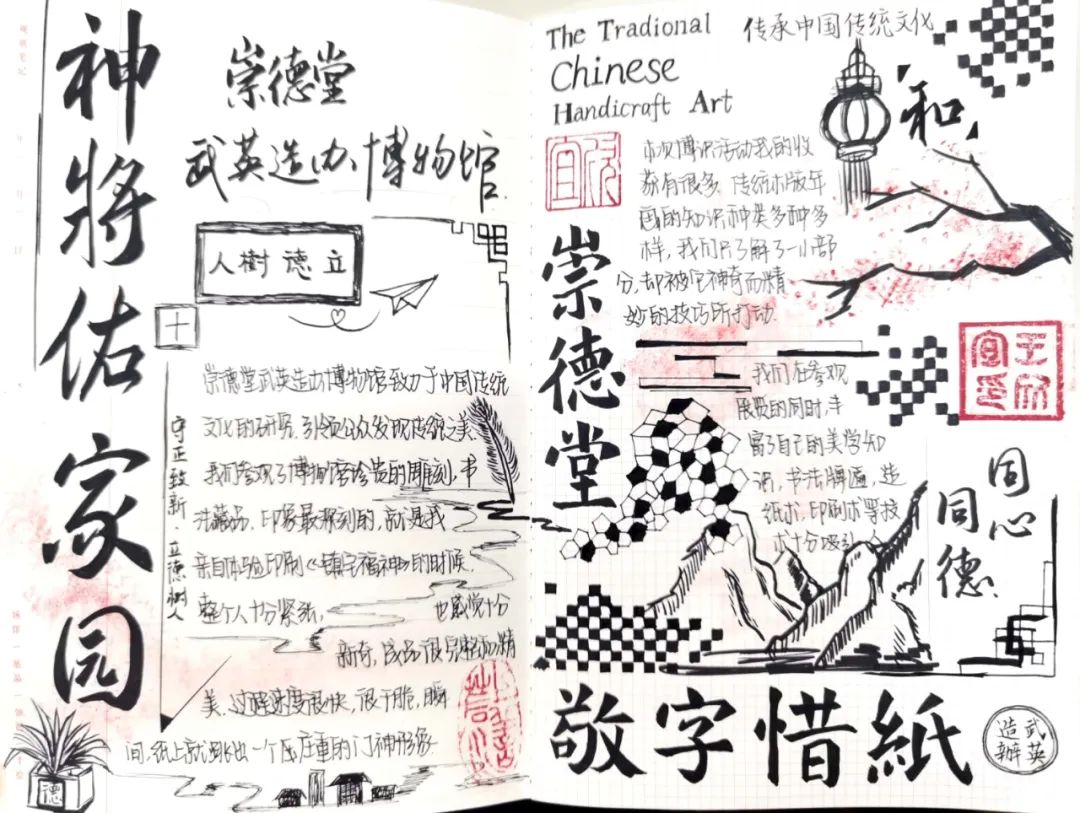 神將佑家园
崇德堂
武英造办博物馆
人樹德立
十
守正致新·立德樹人
崇德堂武英造办博物馆致力于中国传统
文化的研究,引领公众发现传统之美.
我们参观了博物馆珍贵的雕刻,书
法藏品,印象最深刻的,就是我
亲自体验印刷《镇宅福神》的时候.
整个人十分紧张,也感觉十分
新奇,成品很完整和精
美.过程速度很快,很干脆,瞬
间,纸上就出一个庄重的门神形象
德
The Tradional
Chinese
Handicraft Art
传承中国传统文化
和
本次博识活动我的收
获有很多.传统木版年
画的知识种类多种多
样,我们只了解了一小部
分,却被它神奇而精
妙的技巧所打动.
崇德堂
我们在参观
展览的同时,丰
富了自己的美学知
识,书法牌匾,造
纸术,印刷术等技
术十分吸引
同心
同德
敬字惜紙
武英
造辦